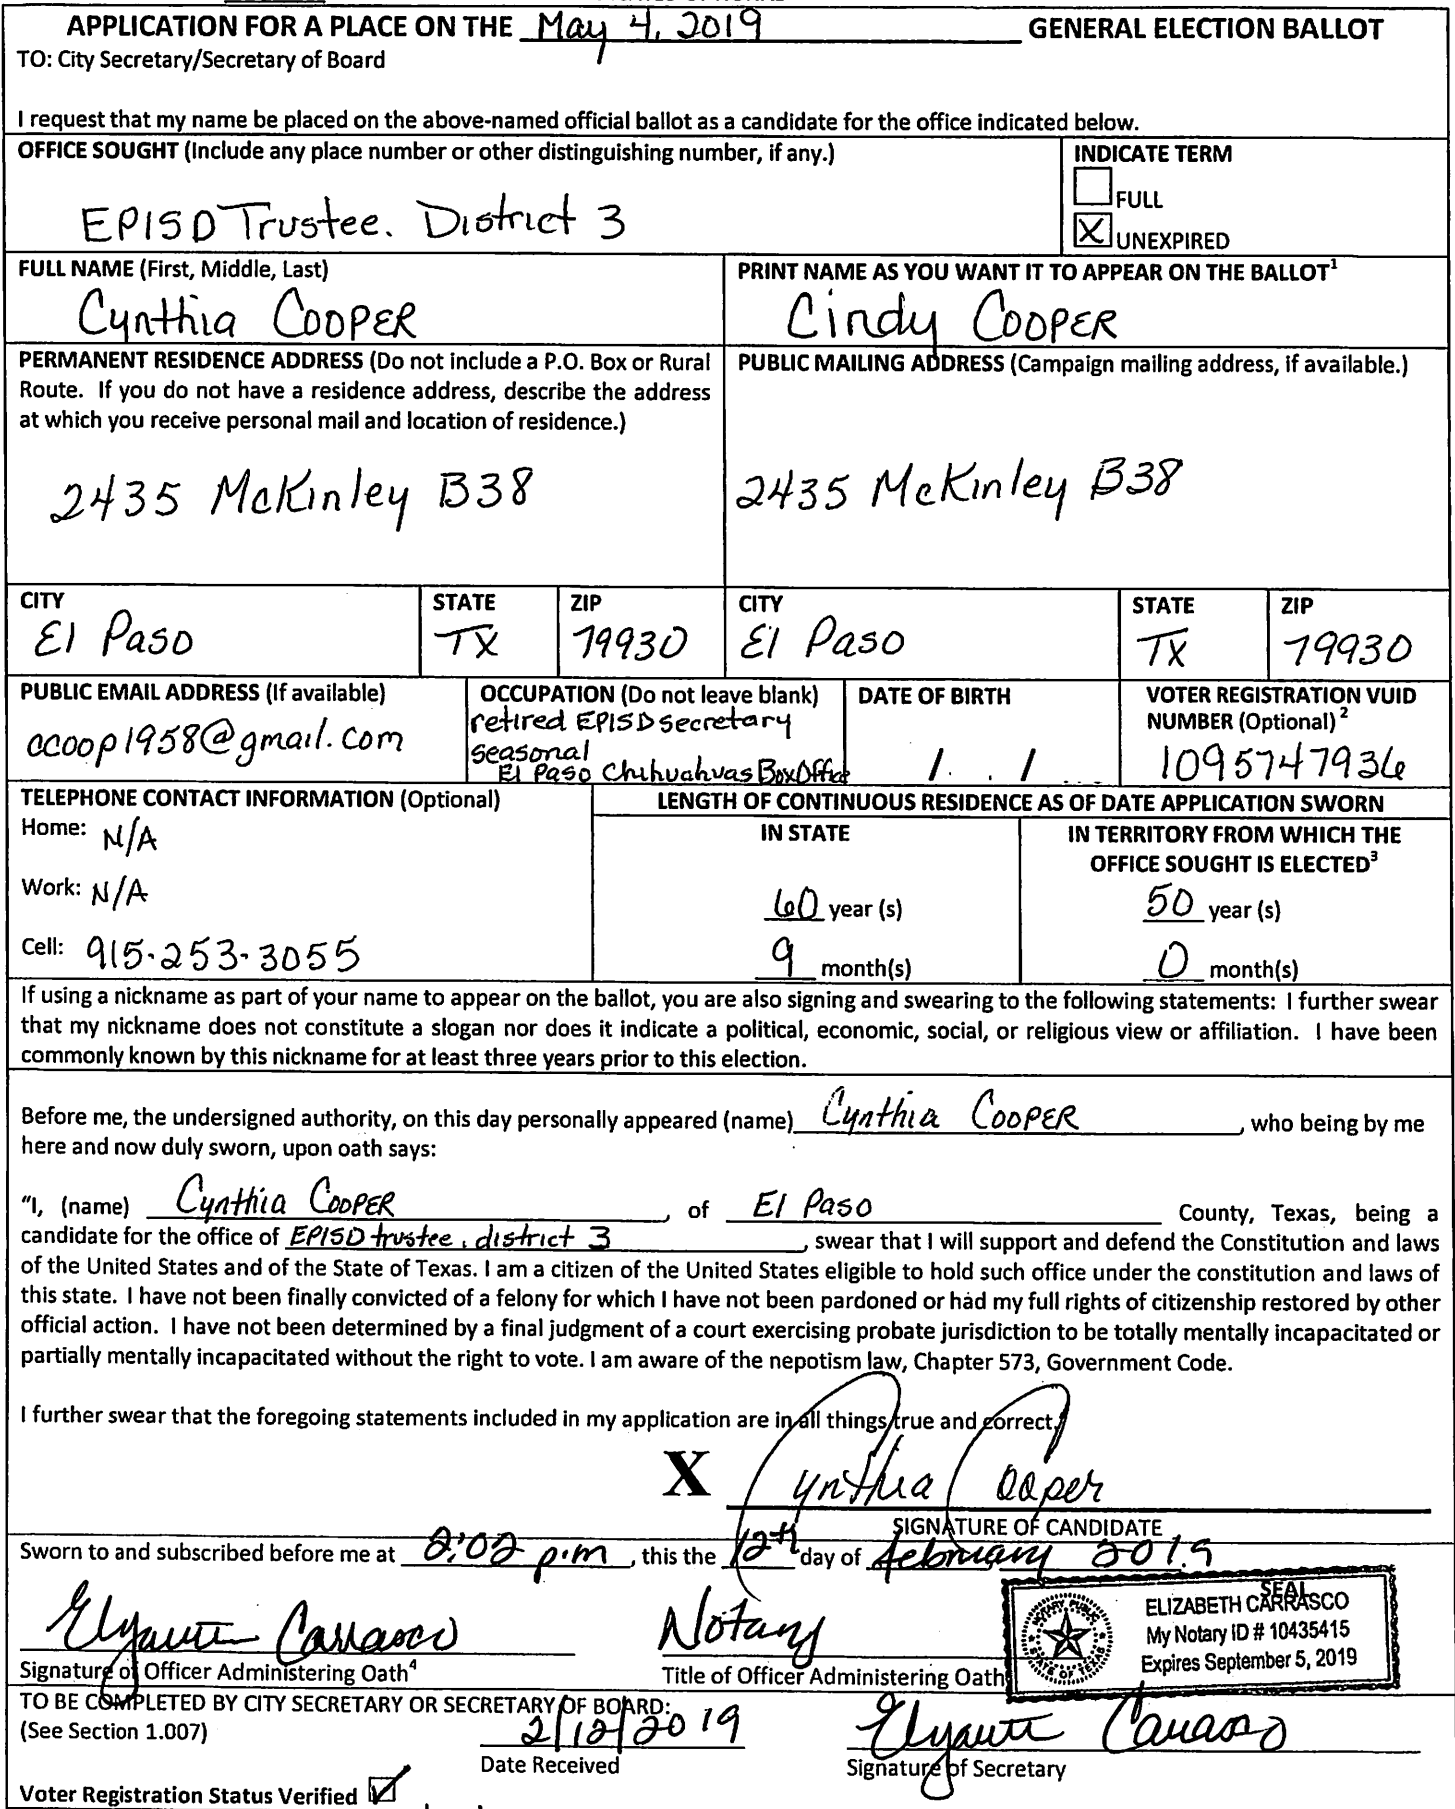 APPLICATION FOR A PLACE ON THE May 4, 2019 GENERAL ELECTION BALLOT
TO: City Secretary/Secretary of Board
I request that my name be placed on the above-named official ballot as a candidate for the office indicated below.
OFFICE SOUGHT (Include any place number or other distinguishing number, if any.)
EPISD Trustee. District 3
INDICATE TERM
FULL
X UNEXPIRED
FULL NAME (First, Middle, Last)
Cynthia COOPER
PRINT NAME AS YOU WANT IT TO APPEAR ON THE BALLOT¹
Cindy COOPER
PERMANENT RESIDENCE ADDRESS (Do not include a P.O. Box or Rural
Route. If you do not have a residence address, describe the address
at which you receive personal mail and location of residence.)
2435 McKinley B38
PUBLIC MAILING ADDRESS (Campaign mailing address, if available.)
2435 McKinley B38
CITY
El Paso
STATE
TX
ZIP
79930
CITY
El Paso
STATE
TX
ZIP
79930
PUBLIC EMAIL ADDRESS (If available)
ccoop1958@gmail.com
OCCUPATION (Do not leave blank)
retired EPISD secretary
seasonal
El Paso Chihuahuas Box Office
DATE OF BIRTH
/ /
VOTER REGISTRATION VUID
NUMBER (Optional) ²
1095747936
TELEPHONE CONTACT INFORMATION (Optional)
Home: N/A
Work: N/A
Cell: 915-253-3055
LENGTH OF CONTINUOUS RESIDENCE AS OF DATE APPLICATION SWORN
IN STATE
60 year (s)
9 month(s)
IN TERRITORY FROM WHICH THE
OFFICE SOUGHT IS ELECTED³
50 year (s)
0 month(s)
If using a nickname as part of your name to appear on the ballot, you are also signing and swearing to the following statements: I further swear
that my nickname does not constitute a slogan nor does it indicate a political, economic, social, or religious view or affiliation. I have been
commonly known by this nickname for at least three years prior to this election.
Before me, the undersigned authority, on this day personally appeared (name) Cynthia COOPER, who being by me
here and now duly sworn, upon oath says:
"I, (name) Cynthia COOPER, of El Paso County, Texas, being a
candidate for the office of EPISD trustee, district 3, swear that I will support and defend the Constitution and laws
of the United States and of the State of Texas. I am a citizen of the United States eligible to hold such office under the constitution and laws of
this state. I have not been finally convicted of a felony for which I have not been pardoned or had my full rights of citizenship restored by other
official action. I have not been determined by a final judgment of a court exercising probate jurisdiction to be totally mentally incapacitated or
partially mentally incapacitated without the right to vote. I am aware of the nepotism law, Chapter 573, Government Code.
I further swear that the foregoing statements included in my application are in all things true and correct.
X Cynthia Cooper
SIGNATURE OF CANDIDATE
Sworn to and subscribed before me at 2:02 p.m, this the 12th day of february, 2019
SEAL
ELIZABETH CARRASCO
My Notary ID # 10435415
Expires September 5, 2019
NOTARY PUBLIC
STATE OF TEXAS
Carrasco
Notary
Signature of Officer Administering Oath⁴
Title of Officer Administering Oath
TO BE COMPLETED BY CITY SECRETARY OR SECRETARY OF BOARD:
(See Section 1.007)
2/12/2019
Date Received
Carrasco
Signature of Secretary
Voter Registration Status Verified ✓